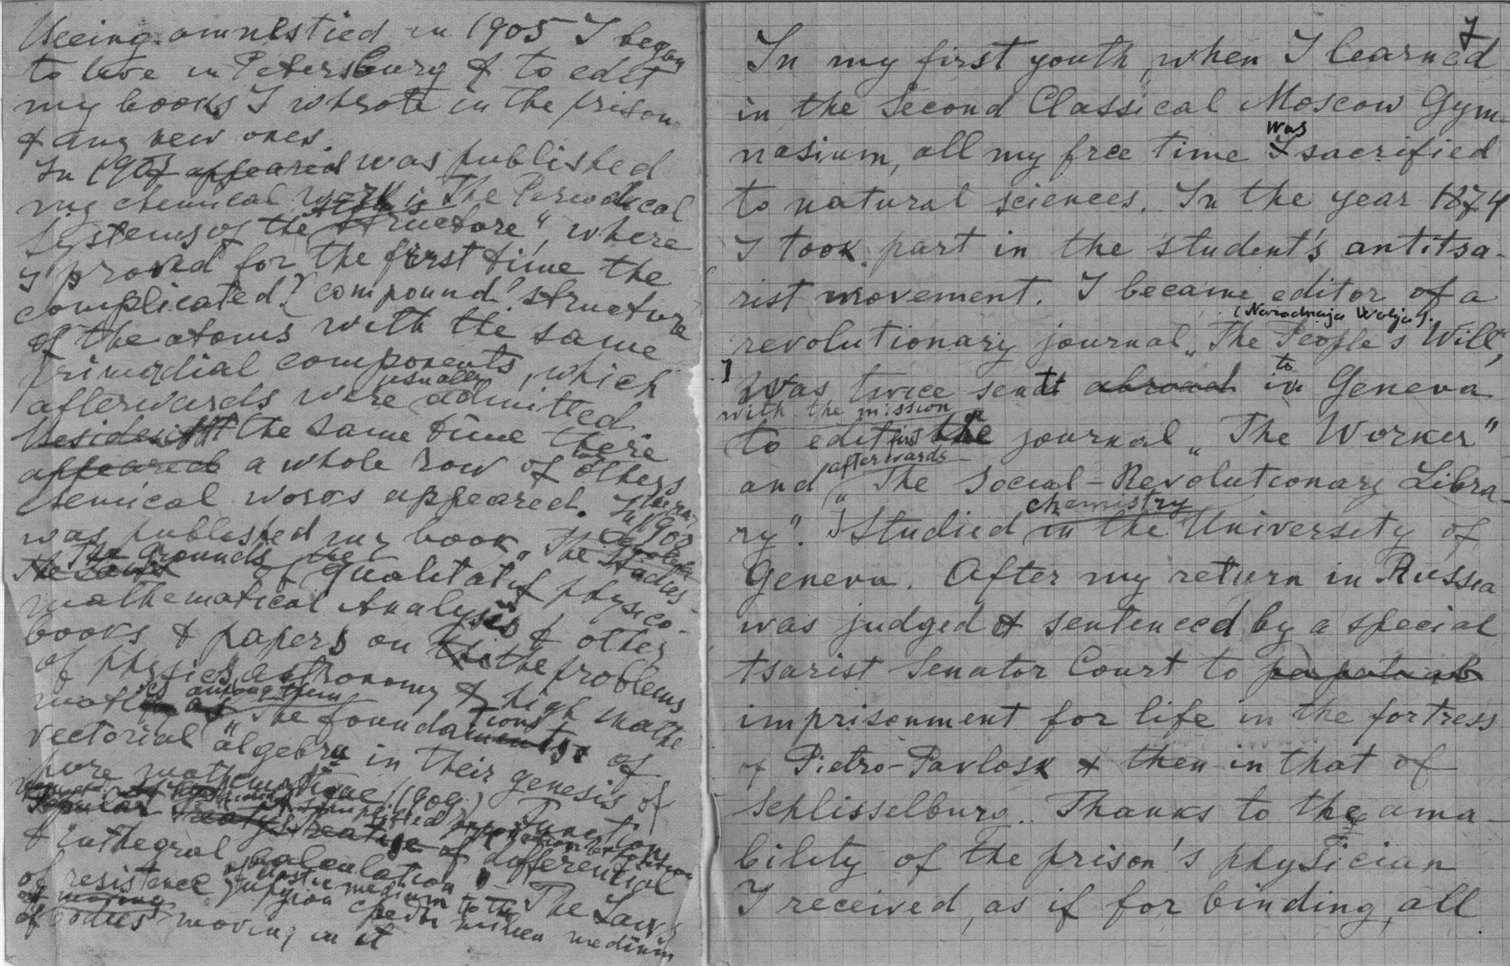 Beeing amnestied in 1905 I began
to live in Petersburg & to edit
my books I wrote in the prison
& any new ones.
In 1907 appeared was published
my chemical work „The Periodical
Systems of the structure", where
I proved for the first time the
complicated? compound? structure
of the atoms with the same
primordial components, which
usually
afterwards were admitted
Besides the same time there
appeared a whole row of others
chemical works appeared. In 1908
was published my book „The
The grounds of Qualitatif physico-
mathematical Analysis & other
books & papers on the problems
of physics, astronomy & high mathe
matics among them
as „The foundations of
vectorial algebra in their genesis of
pure mathematique (1909) Function
& inthegral calculation of differential
of resistence The Laws
of moving medium to the
of bodies moving in it medium
I
In my first youth, when I learned
in the Second Classical Moscow Gym-
was
nasium, all my free time I sacrified
to natural sciences. In the year 1874
I took part in the student's antitsa-
rist movement. I became editor of a
(Narodnaja Wolja).
revolutionary journal „The People's Will",
I was twice sent abroad in to Geneva
with the mission
to edit first the journal „The Worker"
afterwards
and „The Social-Revolutionary Libra-
chemistry
ry". I Studied in the University of
Geneva. After my return in Russia
was judged & sentenced by a special
tsarist Senator Court to
imprisonment for life in the fortress
of Pietro-Pavlosk & then in that of
Schlisselburg. Thanks to the ama-
bility of the prison's physician
I received, as if for binding, all